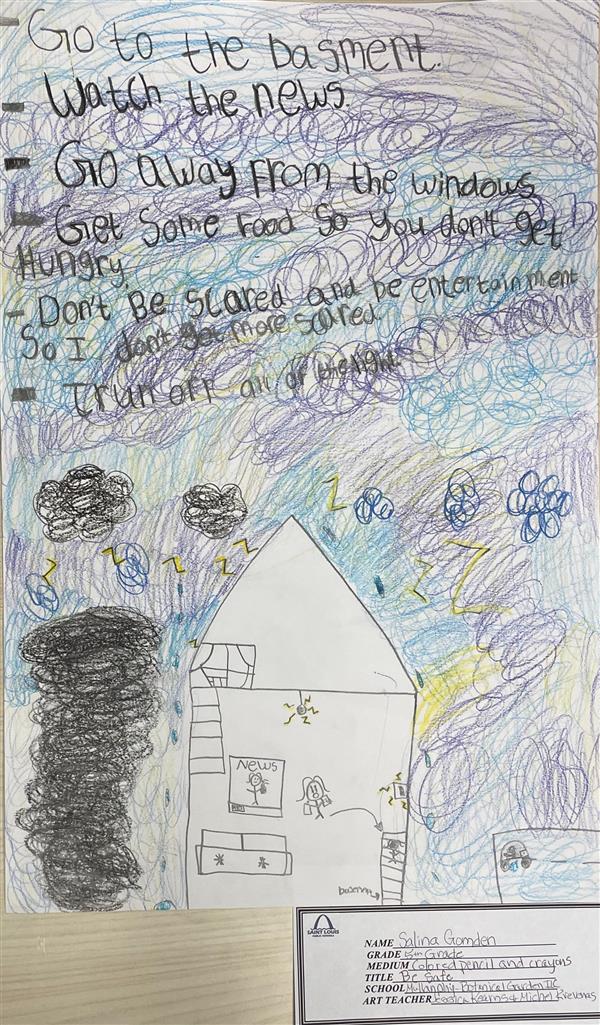 - Go to the basment.
- Watch the news.
- Go away from the windows
- Get Some Food So you don't get
Hungry.
- Don't Be Scared and be entertainment
So I don't get more scared.
- Trun off all of the light
News
basement
SAINT LOUIS
PUBLIC SCHOOLS
NAME Salina Gomden
GRADE 5th Grade
MEDIUM Colored pencil and crayons
TITLE Be Safe
SCHOOL Mullanphy Botanical Garden ILC
ART TEACHER Jessica Kearns & Michel